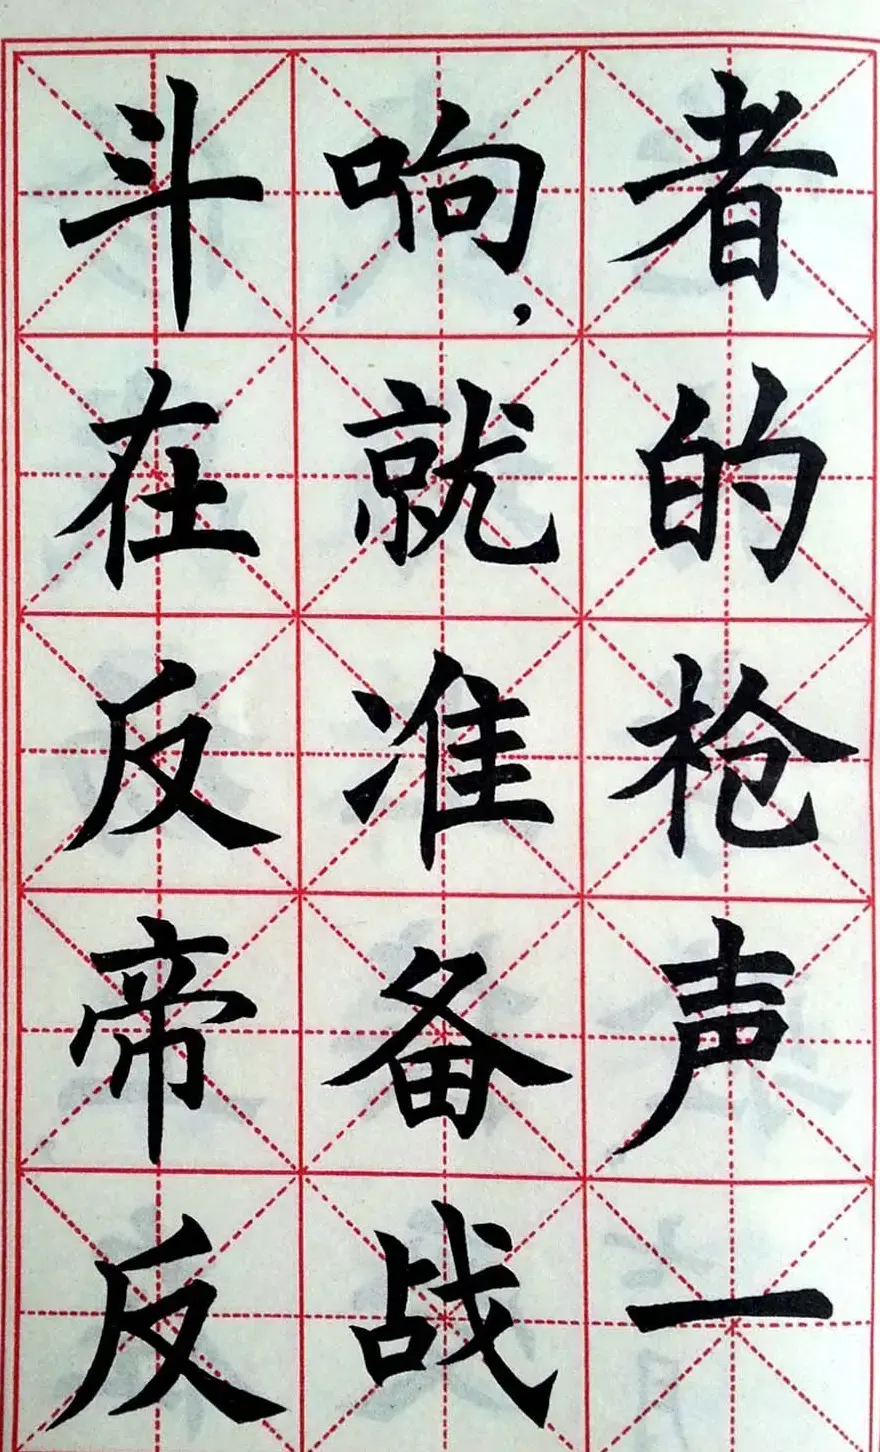 者的枪声一
响，就准备战
斗在反帝反